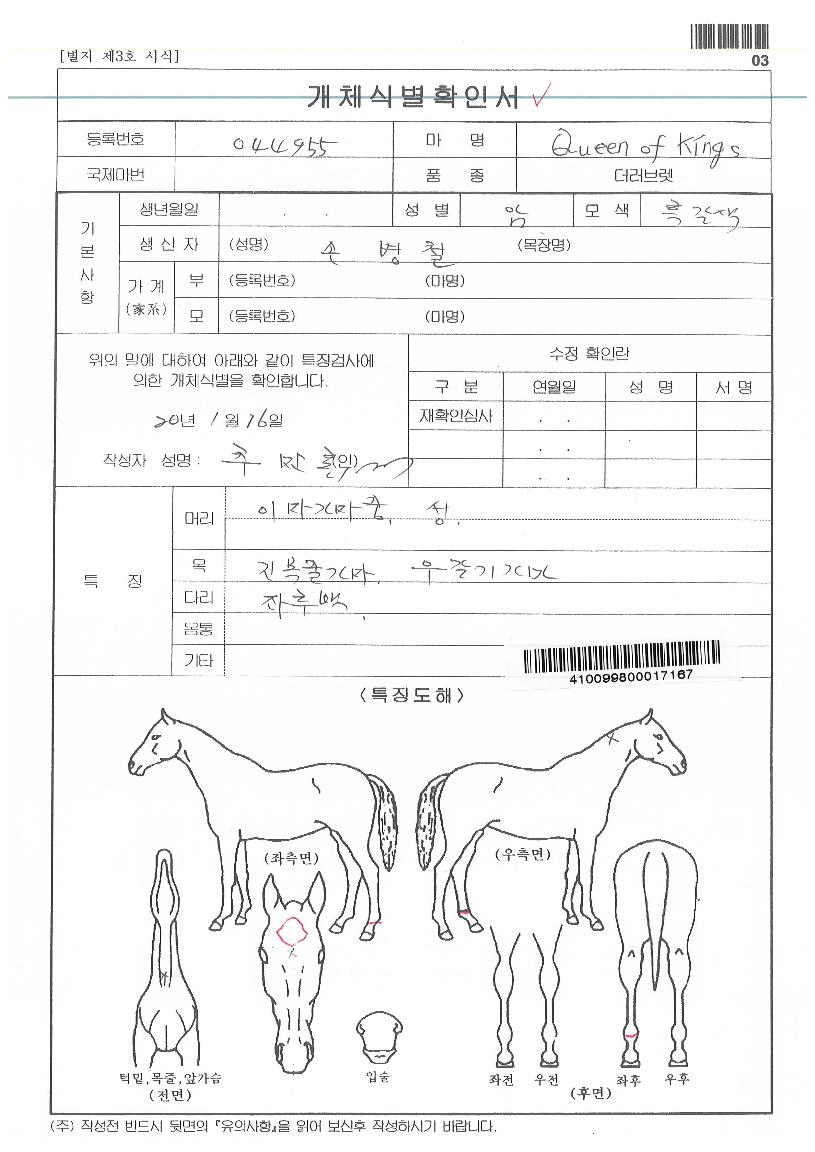 [별지 제3호 서식]
03
개체식별확인서 ✓
등록번호 044955 마 명 Queen of Kings
국제마번 품 종 더러브렛
기본사항
생년월일 . . 성 별 암 모 색 흑갈색
생 산 자 (성명) 손 병 철 (목장명)
가 계 (家系) 부 (등록번호) (마명)
모 (등록번호) (마명)
위의 말에 대하여 아래와 같이 특징검사에
의한 개체식별을 확인합니다.
20년 1월 16일
작성자 성명 : 추 (인)
수정 확인란
구 분 연월일 성 명 서 명
재확인심사 . .
. .
. .
특 징
머리 이마가마중, 성.
목
다리 좌후백
몸통
기타
410099800017167
<특징도해>
(좌측면) (우측면)
턱밑,목줄,앞가슴
(전면)
입술
좌전 우전 좌후 우후
(후면)
(주) 작성전 반드시 뒷면의 『유의사항』을 읽어 보신후 작성하시기 바랍니다.